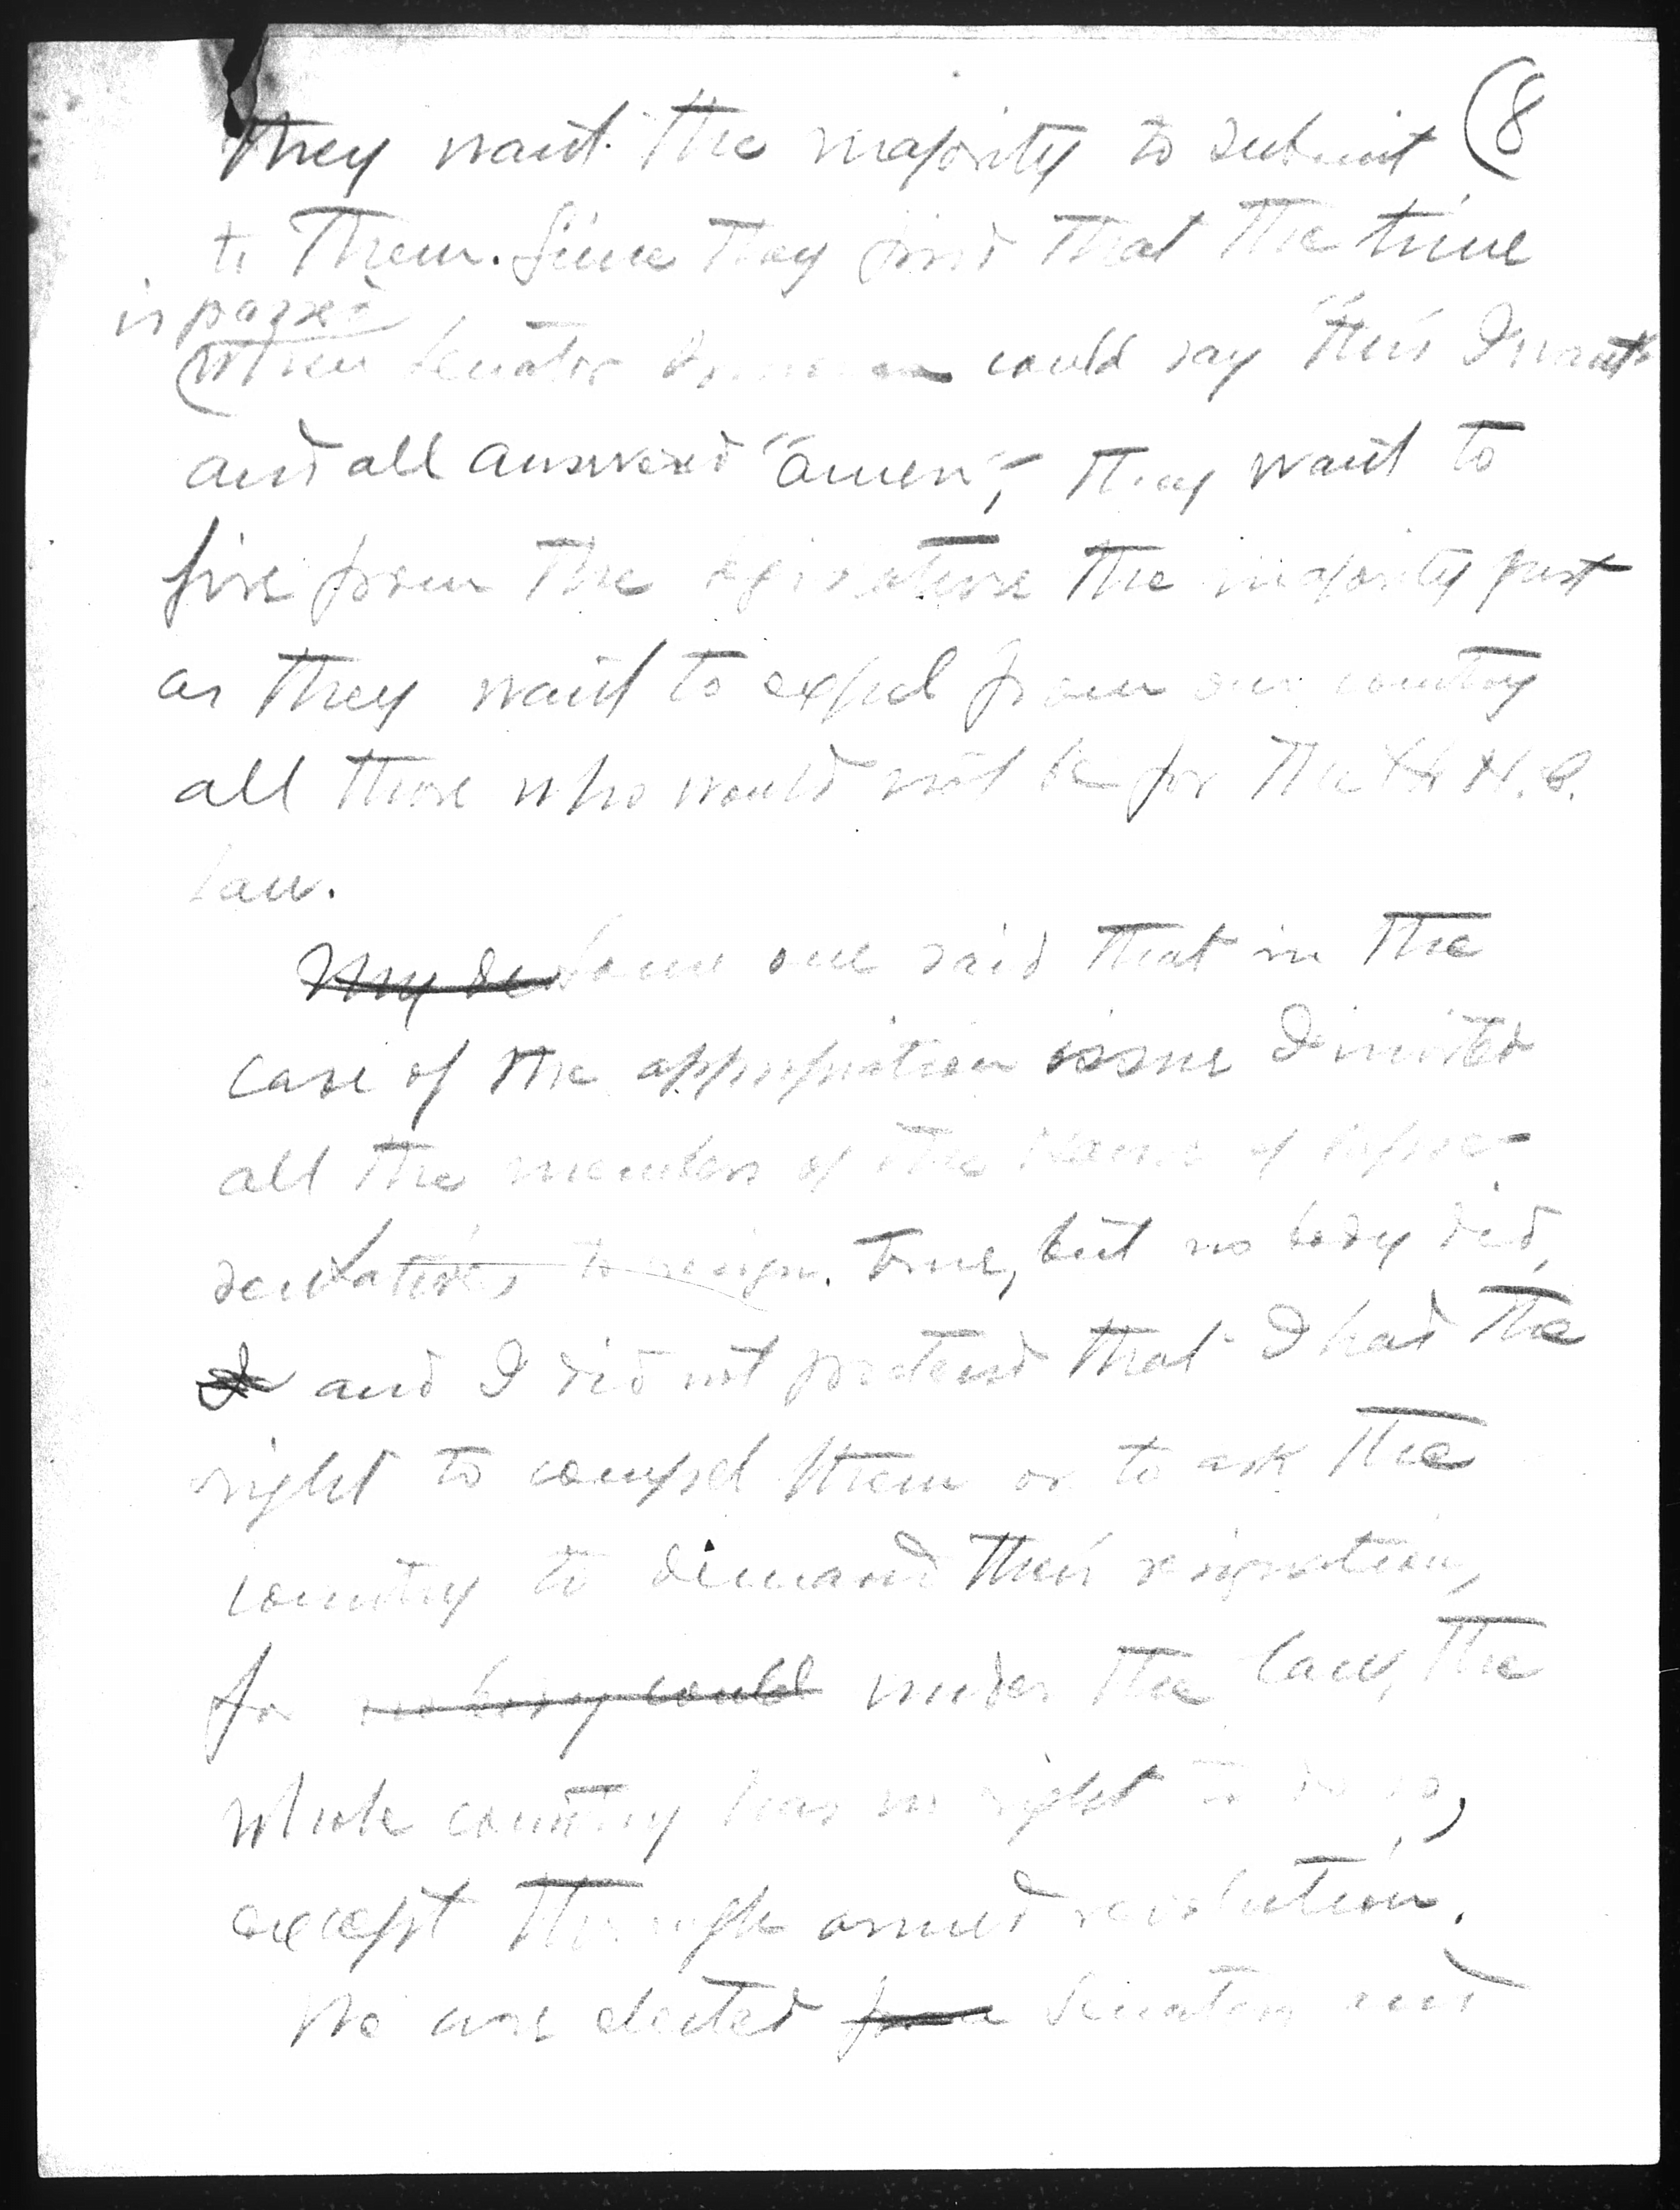 (8
They want the majority to submit
to Them. Since They find That The time
is passed
When Senator could say "this I want"
and all answered "amen", They want to
fire from The legislature The majority just
as They want to expel from our country
all those who would not be for The H. H. C.
Law.
My de Some one said That in The
case of The appropriation issue I invited
all The members of The House of Repre-
sentatives to resign. True, but no body did,
I and I did not pretend that I had The
right to compel Them or to ask The
country to demand Their resignation,
for no body could under The law, The
whole country has no right to do so,
except Through armed revolution.
We are elected from Senators and